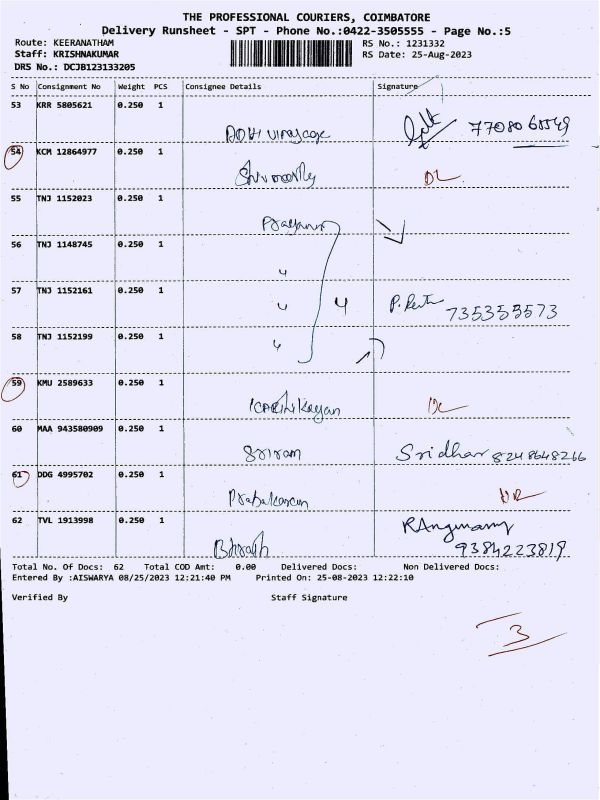 THE PROFESSIONAL COURIERS, COIMBATORE
Delivery Runsheet - SPT - Phone No.:0422-3505555 - Page No.:5
Route: KEERANATHAM RS No.: 1231332
Staff: KRISHNAKUMAR RS Date: 25-Aug-2023
DRS No.: DCJB123133205
S No Consignment No Weight PCS Consignee Details Signature
53 KRR 5805621 0.250 1
54 KCM 12864977 0.250 1
DL
55 TNJ 1152023 0.250 1
56 TNJ 1148745 0.250 1
57 TNJ 1152161 0.250 1
4 7353535573
58 TNJ 1152199 0.250 1
59 KMU 2589633 0.250 1
60 MAA 943580909 0.250 1
Sriram Sridhar 8248648266
61 DDG 4995702 0.250 1
Prabakaran
62 TVL 1913998 0.250 1
Bharath 9384223819
Total No. Of Docs: 62 Total COD Amt: 0.00 Delivered Docs: Non Delivered Docs:
Entered By :AISWARYA 08/25/2023 12:21:40 PM Printed On: 25-08-2023 12:22:10
Verified By Staff Signature
3